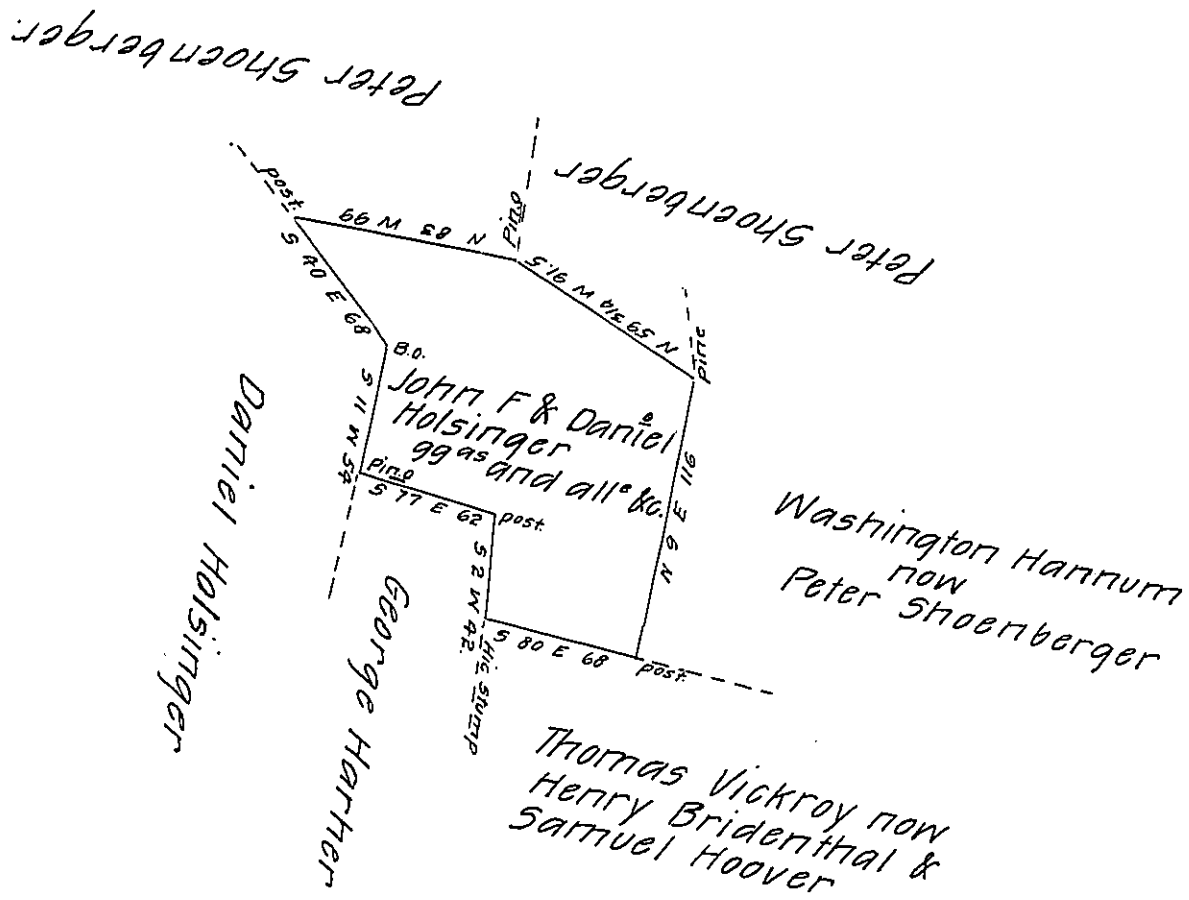 Peter Shoenberger.
Peter Shoenberger
post.
N 83 W 99
pine
N 59 3/4 W 91.5
pine
S 40 E 68
B.O.
S 11 W 54
pine
John F & Daniel
Holsinger
99 as and alle &c.
S 77 E 62
post.
S 2 W 42.
Hic stump
S 80 E 68
post.
N 9 E 116
Daniel Holsinger
George Harher
Washington Hannum
now
Peter Shoenberger
Thomas Vickroy now
Henry Bridenthal &
Samuel Hoover